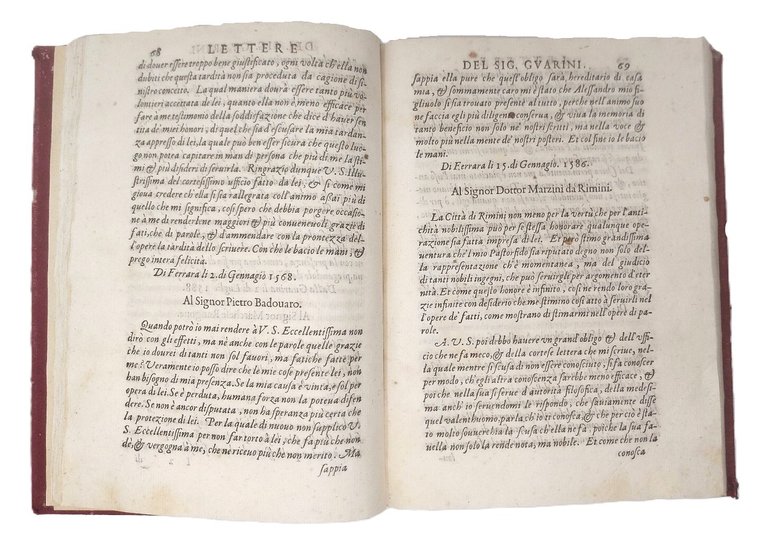 68 LETTERE
di douer essere troppo bene giustificato, ogni volta ch'ella non
dubiti che questa tardità non sia proceduta da cagione di si-
nistro concetto. La qual maniera dourà essere tanto più vo-
lontieri accettata de lei, quanto ella non è meno efficace per
fare à me testimonio della soddisfazione che dice d'hauer sen-
tita de' miei honori, di quel che sia d'escusare la mia tardanza
appresso di lei, la quale può ben esser sicura che questo luo-
go non potea capitare in man di persona che più di me la sti-
mi & più disideri di seruirla. Ringrazio dunque V. S. Illu-
strissima del cortesissimo ufficio fatto da lei, & sì come mi
gioua credere ch'ella si sia rallegrata coll'animo assai più di
quello che mi significa, così spero che debbia porgere occasio-
ne à me di renderlene maggiori & più conueneuoli grazie di
fati, che di parole, & d'ammendare con la prontezza del-
l'opere la tardità dello scriuere. Con che le bacio le mani, &
prego intera felicità.
Di Ferrara li 2. di Gennagio 1568.
Al Signor Pietro Badouaro.
Quando potrò io mai rendere à V. S. Eccellentissima non
dirò con gli effetti, ma nè anche con le parole quelle grazie
che io dourei di tanti non sol fauori, ma fatiche fatte per
me? Veramente io posso dire che le mie cose presente lei, non
han bisogno di mia presenza. Se la mia causa è vinta, è sol per
opera di lei. Se è perduta, humana forza non la poteua difen-
dere. Se non è ancor disputata, non ha speranza più certa che
la protezion di lei. Per la quale di nuouo non supplico V.
S. Eccellentissima per non far torto à lei, che fa più che non
dè, & vergogna à me, che ne riceuo più che non merito. Ma
sappia
DEL SIG. GVARINI. 69
sappia ella pure che quest'obligo sarà hereditario di casa
mia, & sommamente caro mi è stato che Alessandro mio fi-
gliuolo si sia trouato presente al tutto, perche nell'animo suo
ne faccia egli più diligente conserua, & viua la memoria di
tanto beneficio non solo ne' nostri scritti, ma nella voce &
molto più nella mente de' nostri posteri. Et col fine io le bacio
le mani.
Di Ferrara li 15. di Gennagio. 1586.
Al Signor Dottor Marzini da Rimini.
La Città di Rimini non meno per la vertù che per l'anti-
chità nobilissima può per se stessa honorare qualunque ope-
razione sia fatta impresa di lei. Et però stimo grandissima
ventura che'l mio Pastorfido sia reputato degno non solo del-
la rappresentazione ch'è momentanea, ma del giudicio
di tanti nobili ingegni, che può seruirgli per argomento d'eter-
nità. Et come questo honore è infinito, così ne rendo loro gra-
zie infinite con desiderio che me stimino così atto à seruirli nel
l'opere di fatti, come mostrano di stimarmi nell'opere di pa-
role.
A V. S. poi debbo hauere vn grand'obligo & dell'uf-
ficio che ne fa meco, & della cortese lettera che mi scriue, nel-
la quale mentre si scusa di non essere conosciuto, si fa conoscer
per modo, ch'egli altra conoscienza sarebbe meno efficace, &
poi che nella sua si serue d'autorità filosofica, della medesi-
ma anch'io seruendomi le rispondo, che sauiamente disse
quel valenthuomo. parla, ch'io ti conosca, & che per ciò è sta-
to molto souerchia la scusa ch'ella ne fa, poiche la sua fa-
uella non solo la rende nota; ma nobile. Et come che non la
conosca